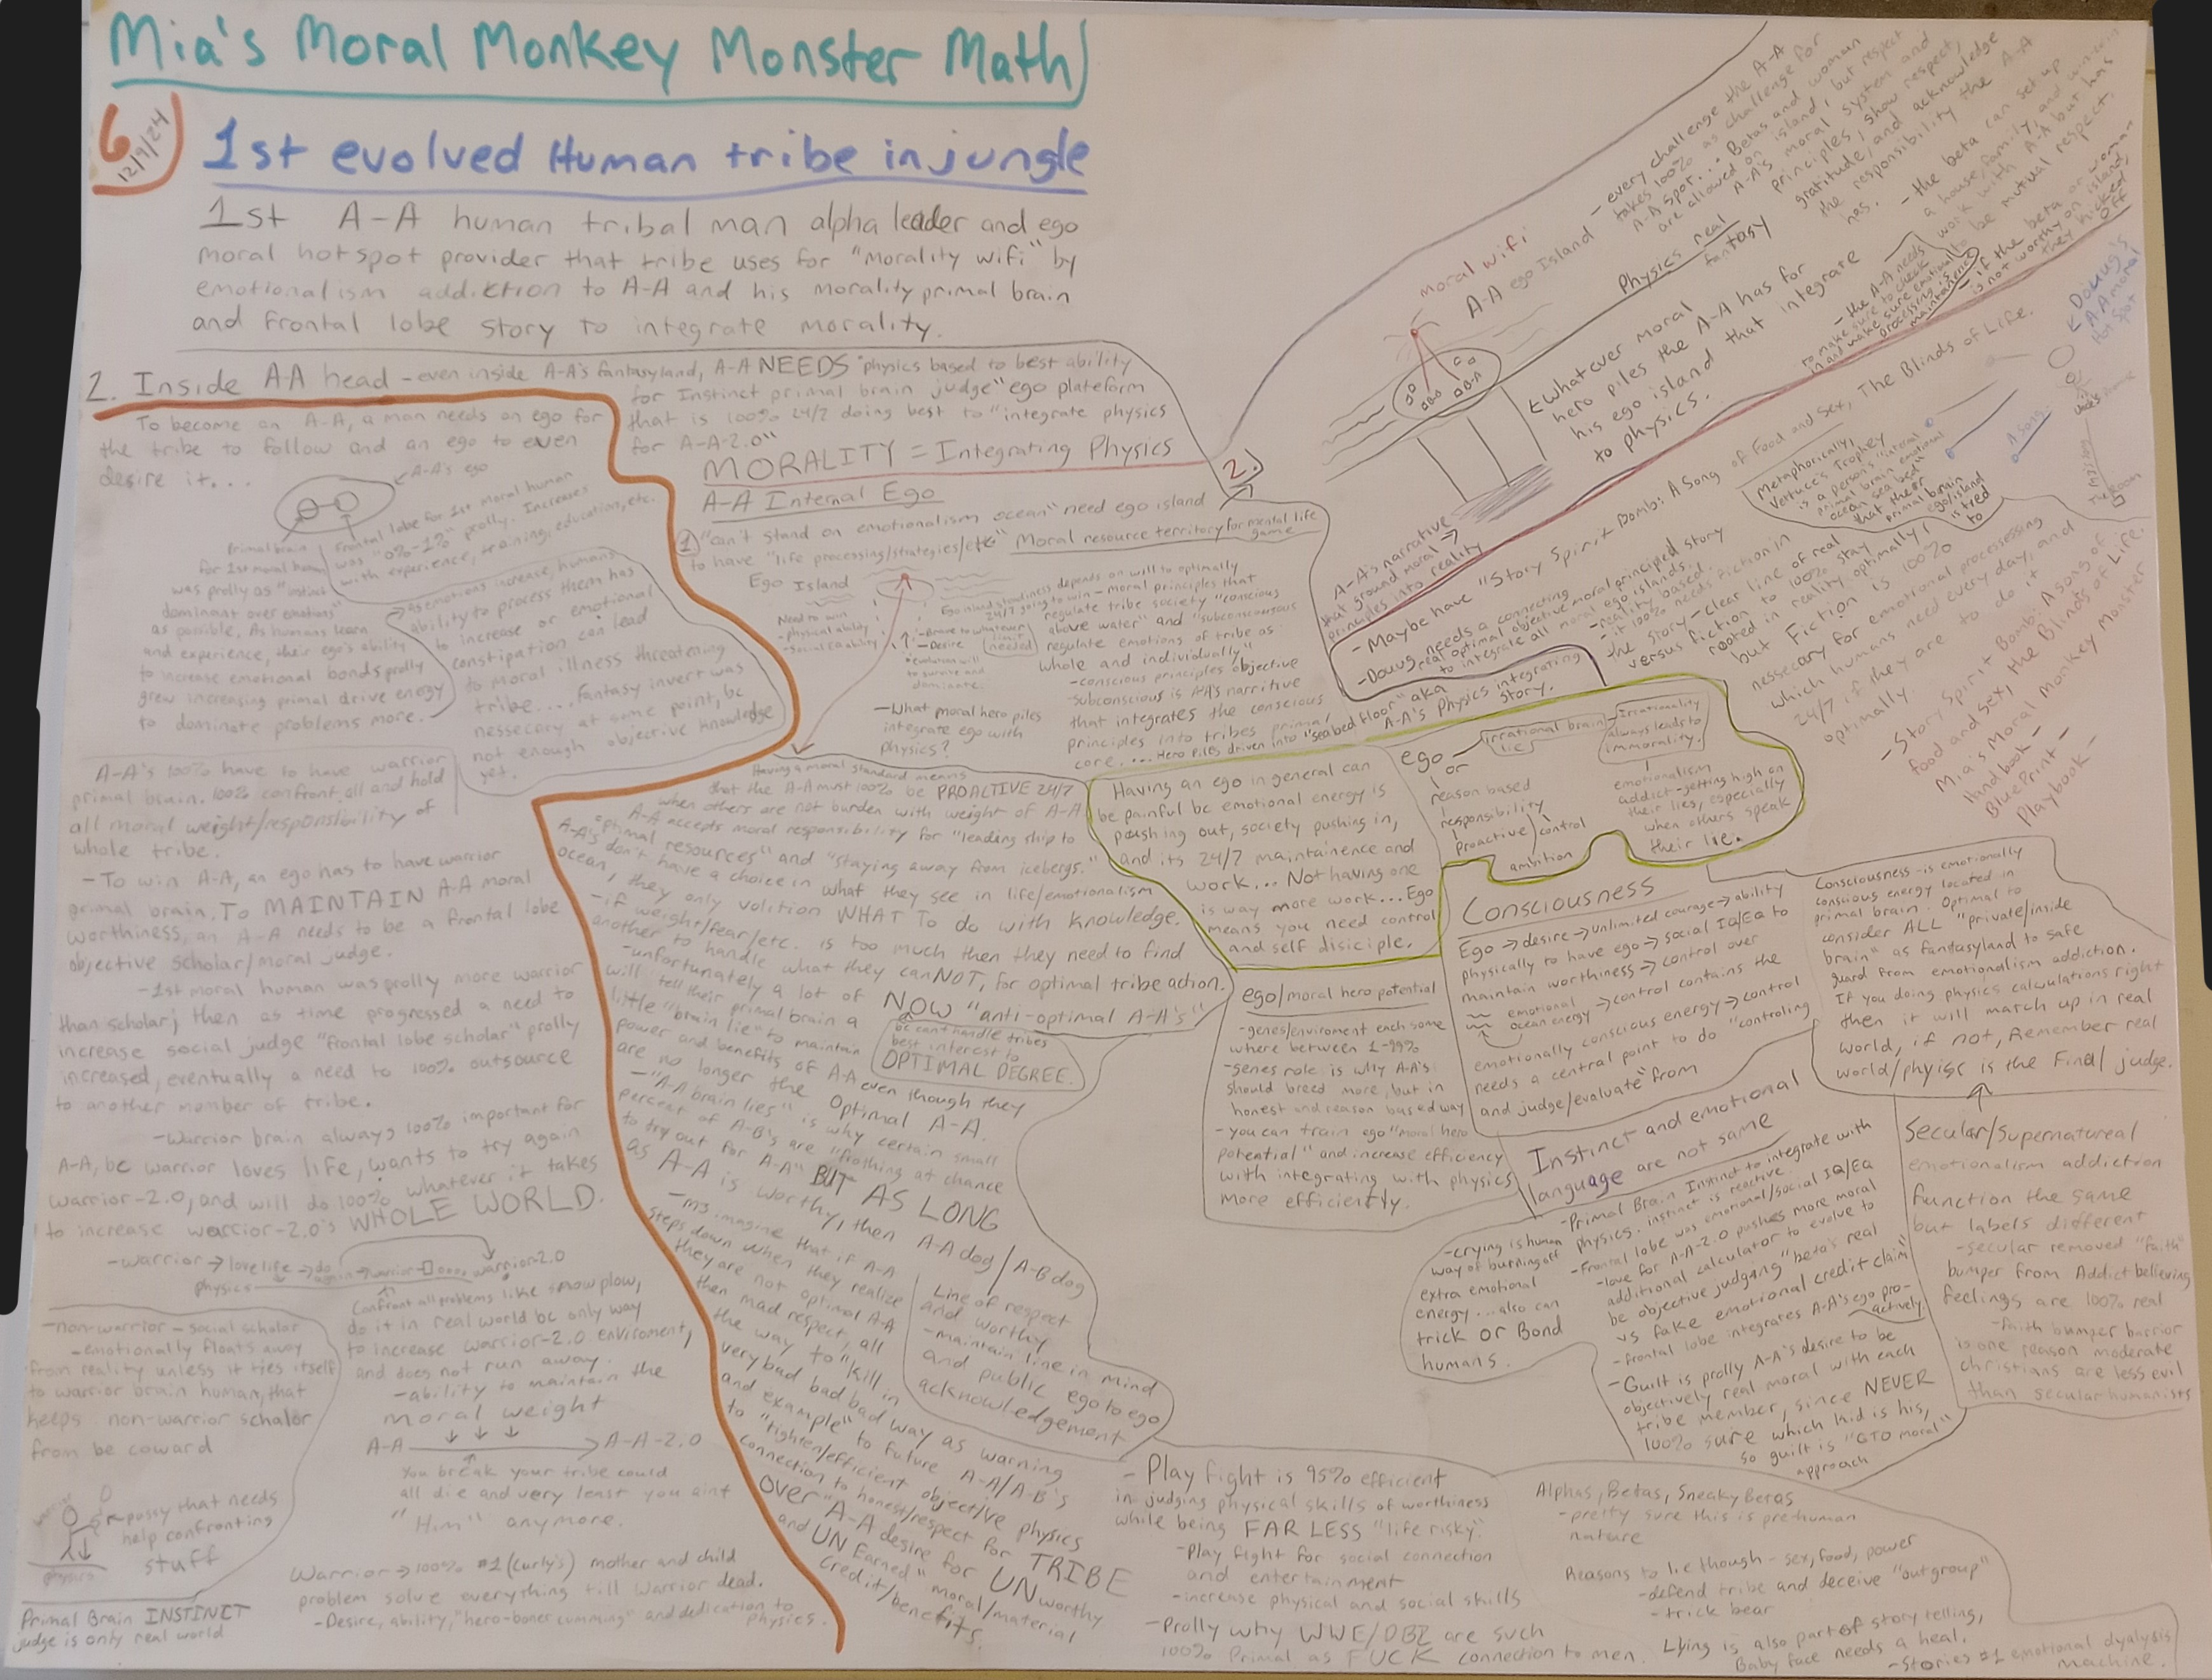 Mia's Moral Monkey Monster Math
6
12/9/24
1st evolved Human tribe in jungle
1st A-A human tribal man alpha leader and ego
moral hotspot provider that tribe uses for "morality wifi" by
emotionalism addiction to A-A and his morality primal brain
and frontal lobe story to integrate morality.
2. Inside A-A head - even inside A-A's fantasyland, A-A NEEDS "physics based to best ability
for Instinct primal brain judge" ego plateform
that is 100% 24/7 doing best to "integrate physics
for A-A-2.0"
To become an A-A, a man needs an ego for
the tribe to follow and an ego to even
desire it...
A-A's ego
Primal brain
for 1st moral human
was prolly as "instinct
dominant over emotions"
as possible. As humans learn
and experience, their ego's ability
to increase emotional bonds prolly
grew increasing primal drive energy
to dominate problems more.
Frontal lobe for 1st moral human
was "0%-1%" prolly. Increases
with experience, training, education, etc.
As emotions increase, humans
ability to process them has
to increase or emotional
constipation can lead
to moral illness threatening
tribe.... Fantasy invert was
nessecary at some point, bc
not enough objective knowledge
yet.
A-A's 100% have to have warrior
primal brain. 100% confront all and hold
all moral weight/responsibility of
whole tribe.
-To win A-A, an ego has to have warrior
primal brain. To MAINTAIN A-A moral
worthiness, an A-A needs to be a frontal lobe
objective scholar/moral judge.
-1st moral human was prolly more warrior
than scholar; then as time progressed a need to
increase social judge "frontal lobe scholar" prolly
increased, eventually a need to 100% outsource
to another member of tribe.
-Warrior brain always 100% important for
A-A, bc warrior loves life, wants to try again
warrior-2.0, and will do 100% whatever it takes
to increase warrior-2.0's WHOLE WORLD.
-warrior → love life → do again → warrior → warrior-2.0
physics
Confront all problems like snow plow,
do it in real world bc only way
to increase warrior-2.0 enviroment,
and does not run away.
-ability to maintain the
moral weight
A-A → A-A-2.0
You break your tribe could
all die and very least you aint
"Him" anymore.
-non-warrior - social scholar
-emotionally floats away
from reality unless it ties itself
to warrior brain human, that
helps non-warrior scholar
from be coward
warrior
pussy that needs
help confronting
stuff
physics
Primal Brain INSTINCT
judge is only real world
Warrior → 100% #1 (Curly's) mother and child
problem solve everything till warrior dead.
-Desire, ability, "hero-boner cumming" and dedication to
physics.
MORALITY = Integrating Physics
A-A Internal Ego
2.
1 "can't stand on emotionalism ocean" need ego island
to have "life processing/strategies/etc" Moral resource territory for mental life
game
Ego Island
Need to win
-physical ability
-social ability
-Brave to whatever limit needed
-Desire
evolution will
to survive and
dominate.
Ego island steadiness depends on will to optimally
24/7 going to win - moral principles that
regulate tribe society "conscious
above water" and "subconscious
regulate emotions of tribe as
whole and individually"
-conscious principles objective
-subconscious is A-A's narritive
that integrates the conscious
principles into tribes primal
core.... Hero piles driven into "sea bed floor" aka
A-A's Physics integrating
story.
-What moral hero piles
integrate ego with
physics?
Having a moral standard means
that the A-A must 100% be PROACTIVE 24/7
when others are not burden with weight of A-A
A-A accepts moral responsibility for "leading ship to
optimal resources" and "staying away from icebergs."
A-A's don't have a choice in what they see in life/emotionalism
ocean, they only volition WHAT TO do with knowledge.
-if weight/fear/etc. is too much then they need to find
another to handle what they canNOT, for optimal tribe action.
-unfortunately a lot of NOW "anti-optimal A-A's"
will tell their primal brain a
little "brain lie" to maintain
power and benefits of A-A even though they
are no longer the optimal A-A.
bc can't handle tribes
best interest to
OPTIMAL DEGREE.
-"A-A brain lies" is why certain small
percent of A-B's are "frothing at chance
to try out for A-A" BUT AS LONG
as A-A is worthy, then A-A dog / A-B dog
-m3 imagine that if A-A
steps down when they realize
they are not optimal A-A
then mad respect, all
the way to "kill in
very bad bad bad way as warning
and example" to future A-A/A-B's
to "tighten/efficient objective physics
connection to honest/respect for TRIBE
OVER "A-A desire for UNworthy
and UNEarned" moral/material
Credit/benefits.
Line of respect
and worthy
-maintain line in mind
and public ego to ego
acknowledgement
Having an ego in general can
be painful bc emotional energy is
pushing out, society pushing in,
and its 24/7 maintainence and
work... Not having one
is way more work... Ego
means you need control
and self disiciple.
ego
or
reason based
responsibility
proactive/control
ambition
irrational brain
i.e
Irrationality
always leads to
immorality.
emotionalism
addict-getting high on
their lies, especially
when others speak
their lie.
ego/moral hero potential
-genes/enviroment each some
where between 1-99%
-genes role is why A-A's
should breed more, but in
honest and reason based way
-you can train ego "moral hero
potential" and increase efficiency
with integrating with physics
more efficiently.
Consciousness
Ego → desire → unlimited courage → ability
physically to have ego → social IQ/EQ to
maintain worthiness → control over
emotional
ocean energy → control contains the
emotionally conscious energy → control
needs a central point to do "controling
and judge/evaluate" from
Consciousness is emotionally
conscious energy located in
primal brain. Optimal to
consider ALL "private/inside
brain" as fantasyland to safe
guard from emotionalism addiction.
If you doing physics calculations right
then it will match up in real
world, if not, Remember real
world/physics is the Final judge.
Instinct and emotional
language are not same
-Primal Brain Instinct to integrate with
physics. instinct is reactive.
-Frontal lobe was emotional/social IQ/EQ
-love for A-A-2.0 pushes more moral
additional calculator to evolve to
be objective judging "beta's real
vs fake emotional credit claim"
-frontal lobe integrates A-A's ego pro-
actively
-Guilt is prolly A-A's desire to be
objectively real moral with each
tribe member, since NEVER
100% sure which kid is his,
so guilt is "GTO moral"
approach
-crying is human
way of burning off
extra emotional
energy... also can
trick or Bond
humans.
Secular/Supernatureal
emotionalism addiction
function the same
but labels different
-secular removed "faith"
bumper from Addict believing
feelings are 100% real
-faith bumper barrior
is one reason moderate
christians are less evil
than secular humanists
-Play fight is 95% efficient
in judging physical skills of worthiness
while being FAR LESS "life risky".
-Play fight for social connection
and entertainment
-increase physical and social skills
-Prolly why WWE/DBZ are such
100% Primal as FUCK connection to men.
Alphas, Betas, Sneaky Betas
-pretty sure this is prehuman
nature
Reasons to lie though - sex, food, power
-defend tribe and deceive "outgroup"
-trick bear
Lying is also part of story telling,
Baby face needs a heal.
-Stories #1 emotional dyalysis
machine.
moral wifi
A-A ego Island
-every challenge the A-A
takes 100% as challenge for
A-A spot... Betas and woman
are allowed on island, but respect
A-A's moral system and
principles, show respect,
gratitude, and acknowledge
the responsibility the A-A
has.
-the beta can set up
a house/family, and
work with A-A but has
to be mutual respect.
-if the beta or woman
is not worthy on island,
they kicked
off
-the A-A needs
to make sure to check
and make sure emotional
processing is
maintained
Physics real
fantasy
Whatever moral
hero piles the A-A has for
his ego island that integrate
to physics.
A-A's narrative
that ground moral
principles into reality
-Maybe have "Story Spirit Bomb: A Song of Food and Sex, The Blinds of Life.
-Doung needs a connecting
real optimal objective moral principled story
to integrate all moral ego islands.
-reality based.
-it 100% needs Fiction in
the story - clear line of real
versus fiction to 100% stay
rooted in reality optimally,
but Fiction is 100%
nessecary for emotional processesing
which humans need every day, and
24/7 if they are to do it
optimally
Metaphorically,
Vettuce's Trophey
is a person's "internal
primal brain emotional
ocean sea bed"
that their
primal brain
ego/island
is tred
to
-Story Spirit Bomb: A song of
food and sex, the Blinds of Life.
Mia's Moral Monkey Monster
Handbook -
BluePrint -
Playbook -
Doung's
A-A moral
Hot Spot
A Song
The Room